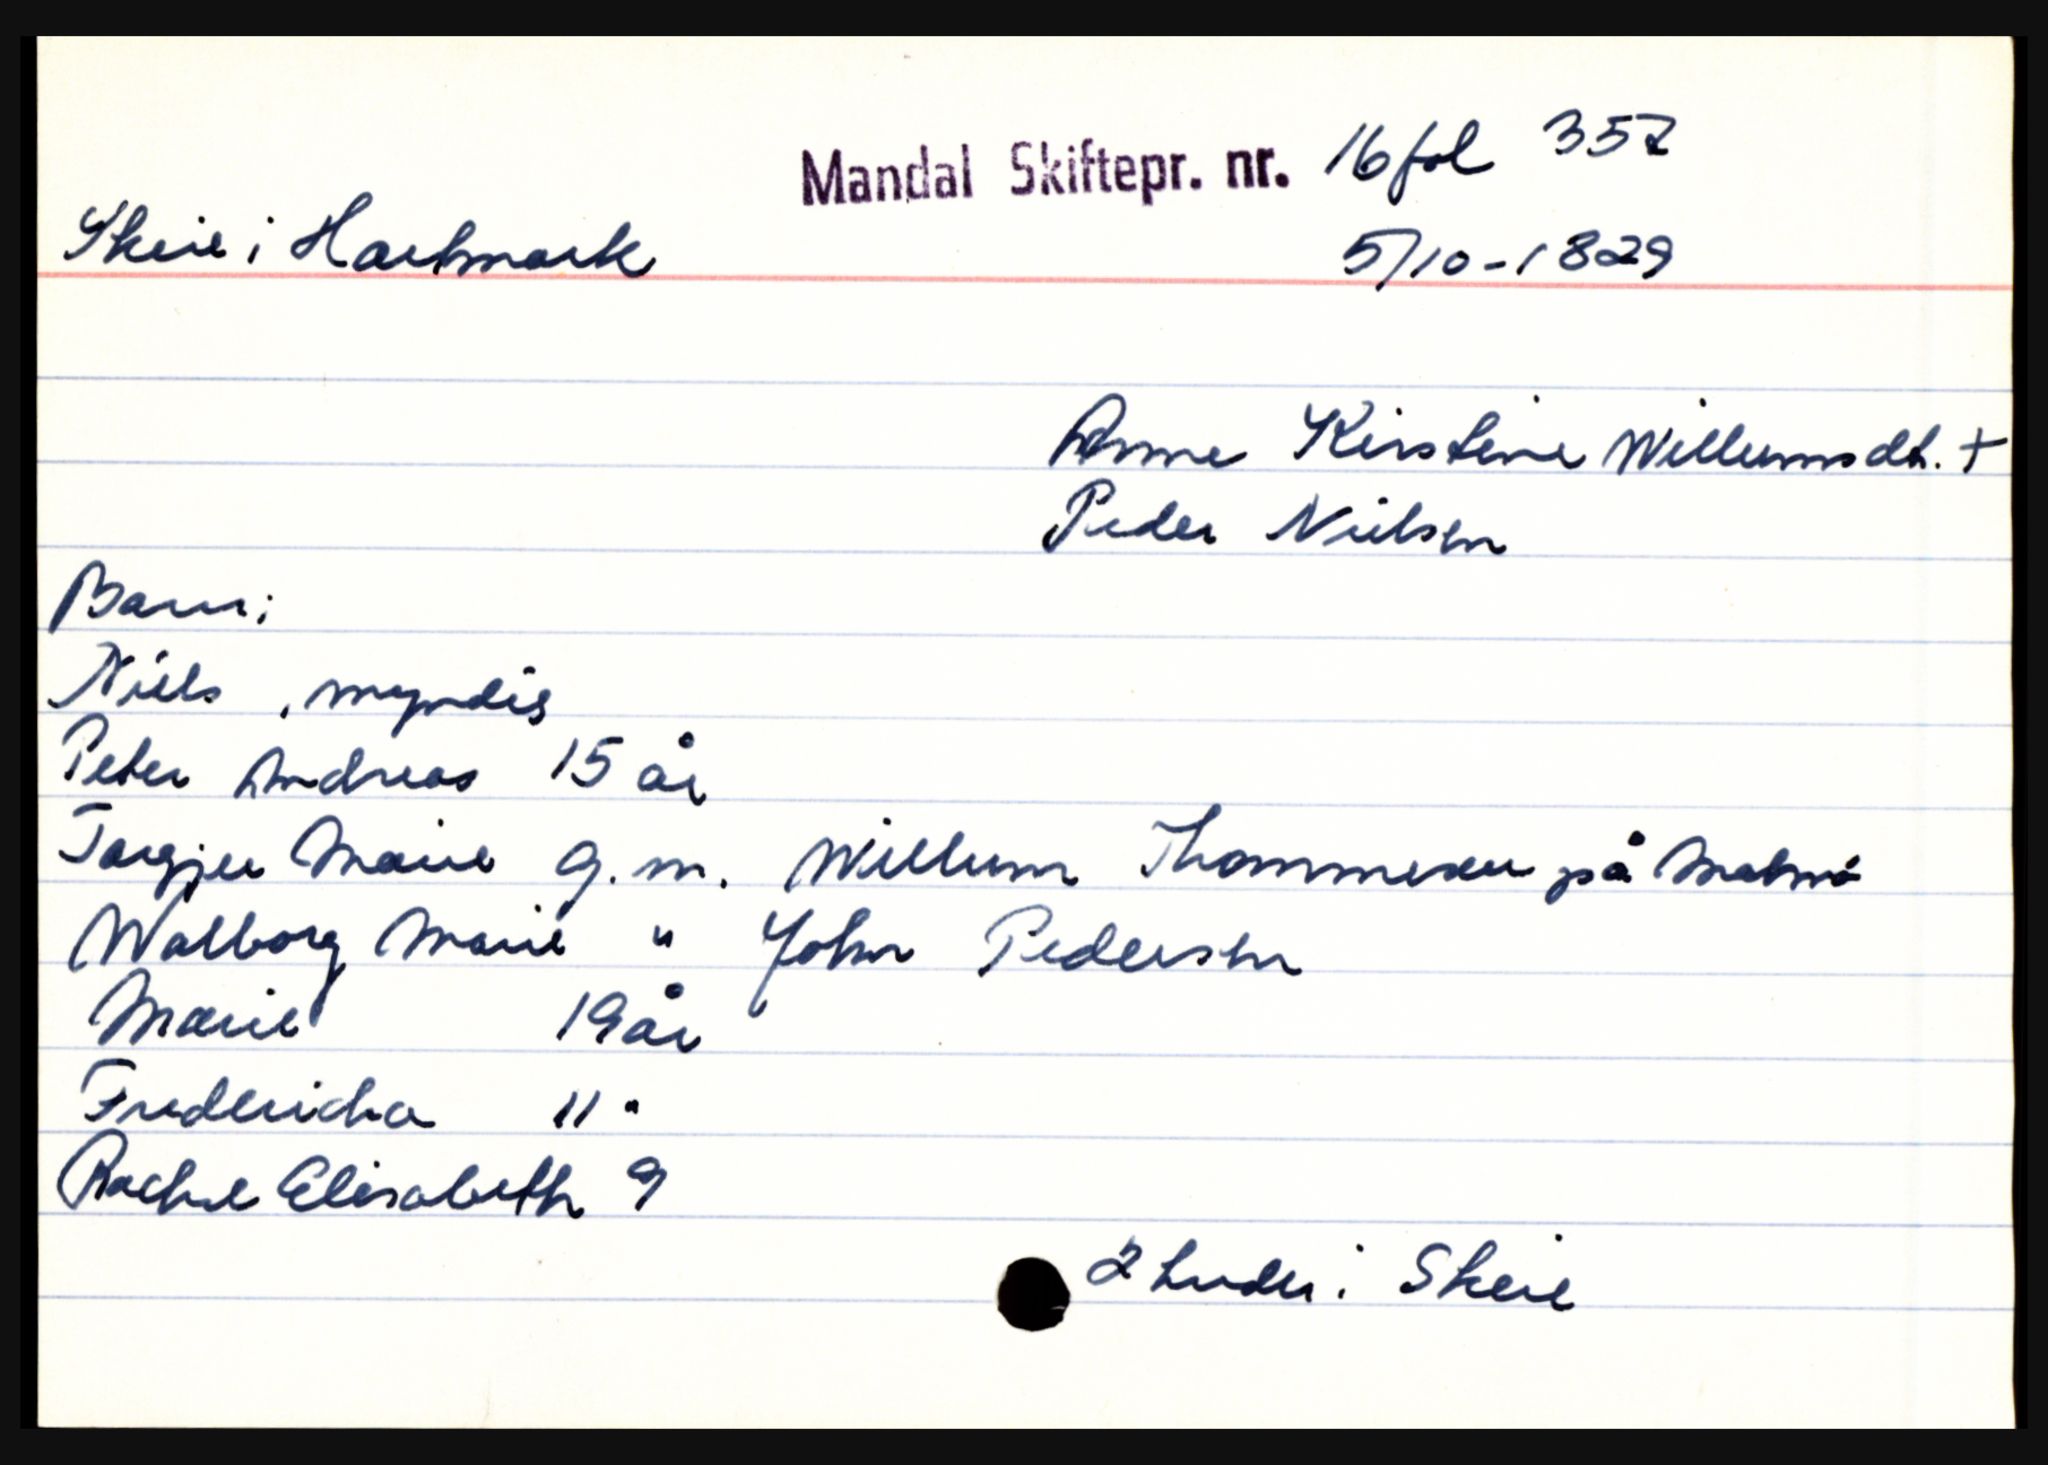 Mandal Skiftepr. nr. 16 fol 357
Skeie i Hartmark 5/10-1829
Anne Kirstine Willumsdt. +
Peder Nielsen
Barn:
Niels, myndig
Peter Andreas 15 år
Torgjer Marie g.m. Willum Thommesen på Malmø
Walborg Marie " John Pedersen
Marie 19 år
Fredericha 11 "
Rachel Elisabeth 9
2 huder i Skeie